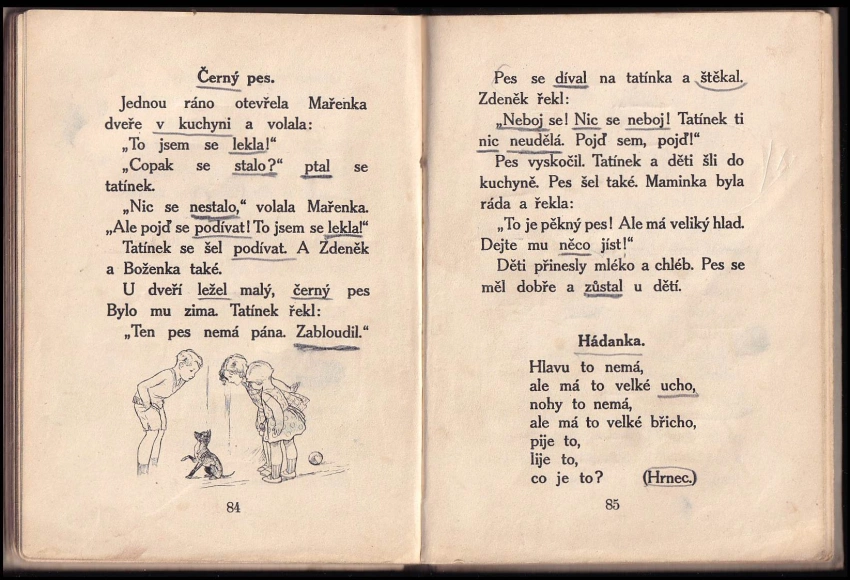 Černý pes.
Jednou ráno otevřela Mařenka
dveře v kuchyni a volala:
„To jsem se lekla!“
„Copak se stalo?“ ptal se
tatínek.
„Nic se nestalo,“ volala Mařenka.
„Ale pojď se podívat! To jsem se lekla!“
Tatínek se šel podívat. A Zdeněk
a Boženka také.
U dveří ležel malý, černý pes
Bylo mu zima. Tatínek řekl:
„Ten pes nemá pána. Zabloudil.“
84
Pes se díval na tatínka a štěkal.
Zdeněk řekl:
„Neboj se! Nic se neboj! Tatínek ti
nic neudělá. Pojď sem, pojď!“
Pes vyskočil. Tatínek a děti šli do
kuchyně. Pes šel také. Maminka byla
ráda a řekla:
„To je pěkný pes! Ale má veliký hlad.
Dejte mu něco jíst!“
Děti přinesly mléko a chléb. Pes se
měl dobře a zůstal u dětí.
Hádanka.
Hlavu to nemá,
ale má to velké ucho,
nohy to nemá,
ale má to velké břicho,
pije to,
lije to,
co je to? (Hrnec.)
85